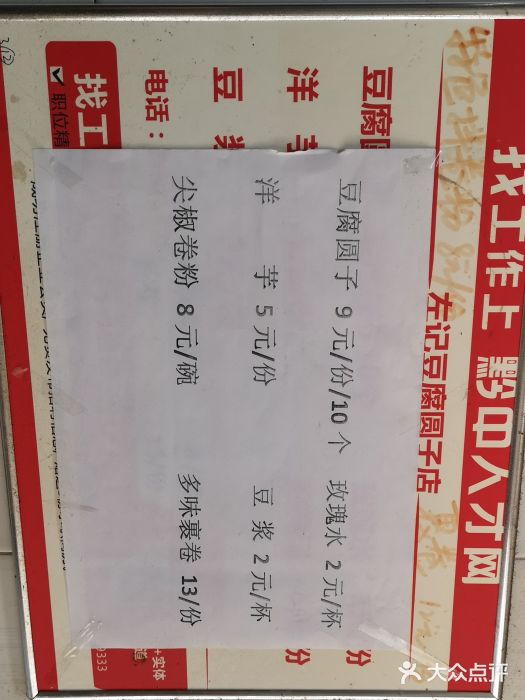 找工作上 黔中人才网
左记豆腐圆子店
豆腐圆
份
洋 芋
份
豆 浆
电话：
找工
职位精
豆腐圆子 9 元/份/10 个 玫瑰水 2 元/杯
洋 芋 5 元/份 豆 浆 2 元/杯
尖椒卷粉 8 元/碗 多味裹卷 13/份
+实体
道
9333
大众点评